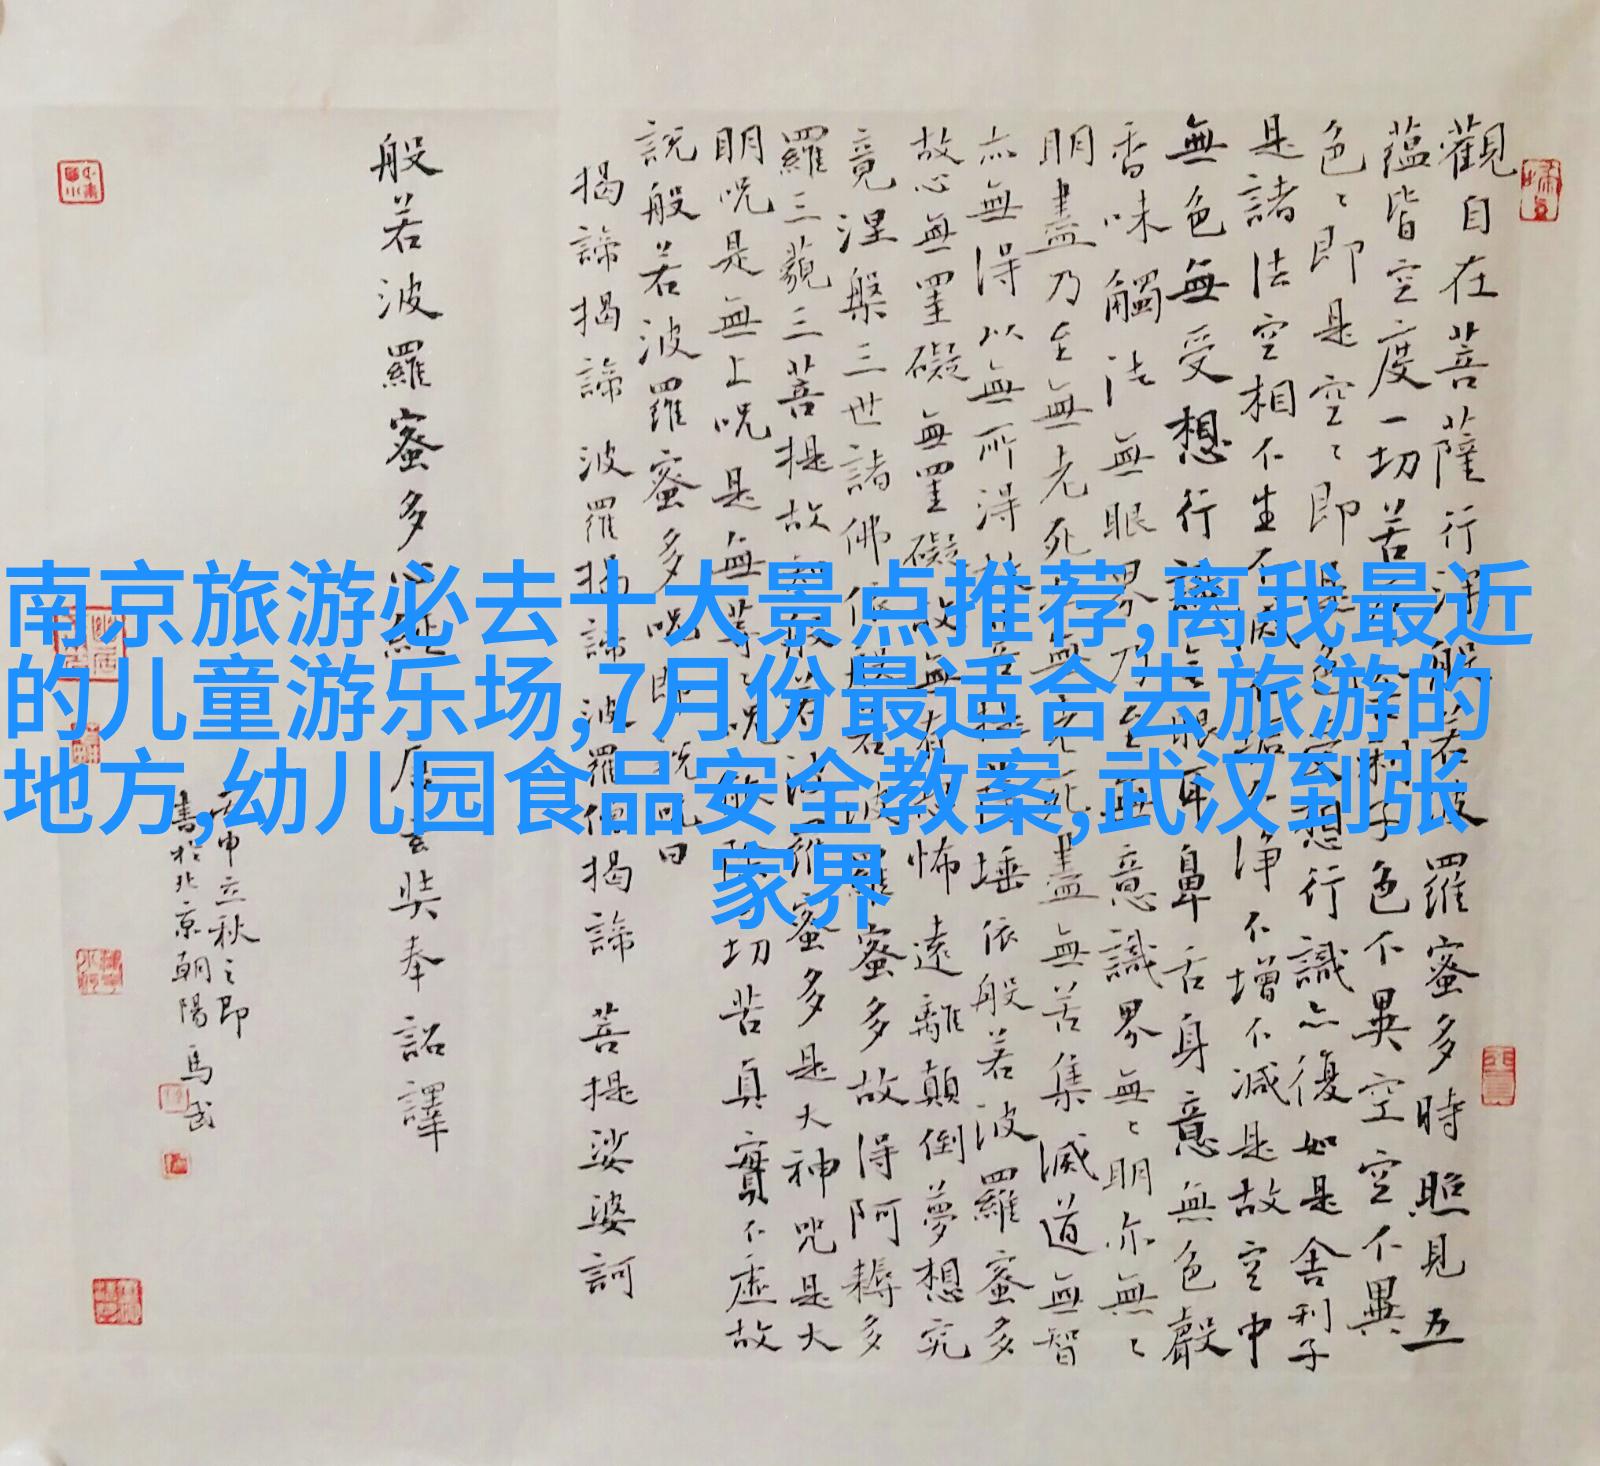 南京旅游必去十大景点推荐,离我最近
的儿童游乐场,7月份最适合去旅游的
地方,幼儿园食品安全教案,武汉到张
家界
觀自在菩薩行深般若波羅蜜多時照見五
蘊皆空度一切苦厄舍利子色不異空空不異
色〻即是空〻即是色受想行識亦復如是舍利子
是諸法空相不生不滅不垢不淨不增不減是故空中
無色無受想行識無眼耳鼻舌身意無色聲
香味觸法無眼界乃至無意識界無〻明亦無〻
明盡乃至無老死亦無老死盡無苦集滅道無智
亦無得以無所得故菩提薩埵依般若波羅蜜多
故心無罣礙無罣礙故無有恐怖遠離顛倒夢想究
竟涅槃三世諸佛依般若波羅蜜多故得阿耨多
羅三藐三菩提故知般若波羅蜜多是大神咒是大
明呪是無上呪是無等〻呪能除一切苦真實不虛故
說般若波羅蜜多呪即說呪曰
揭諦揭諦 波羅揭諦 波羅僧揭諦 菩提娑婆訶
般若波羅蜜多心經 唐玄奘奉詔譯
丙申立秋之即
書於北京朝陽 馬武